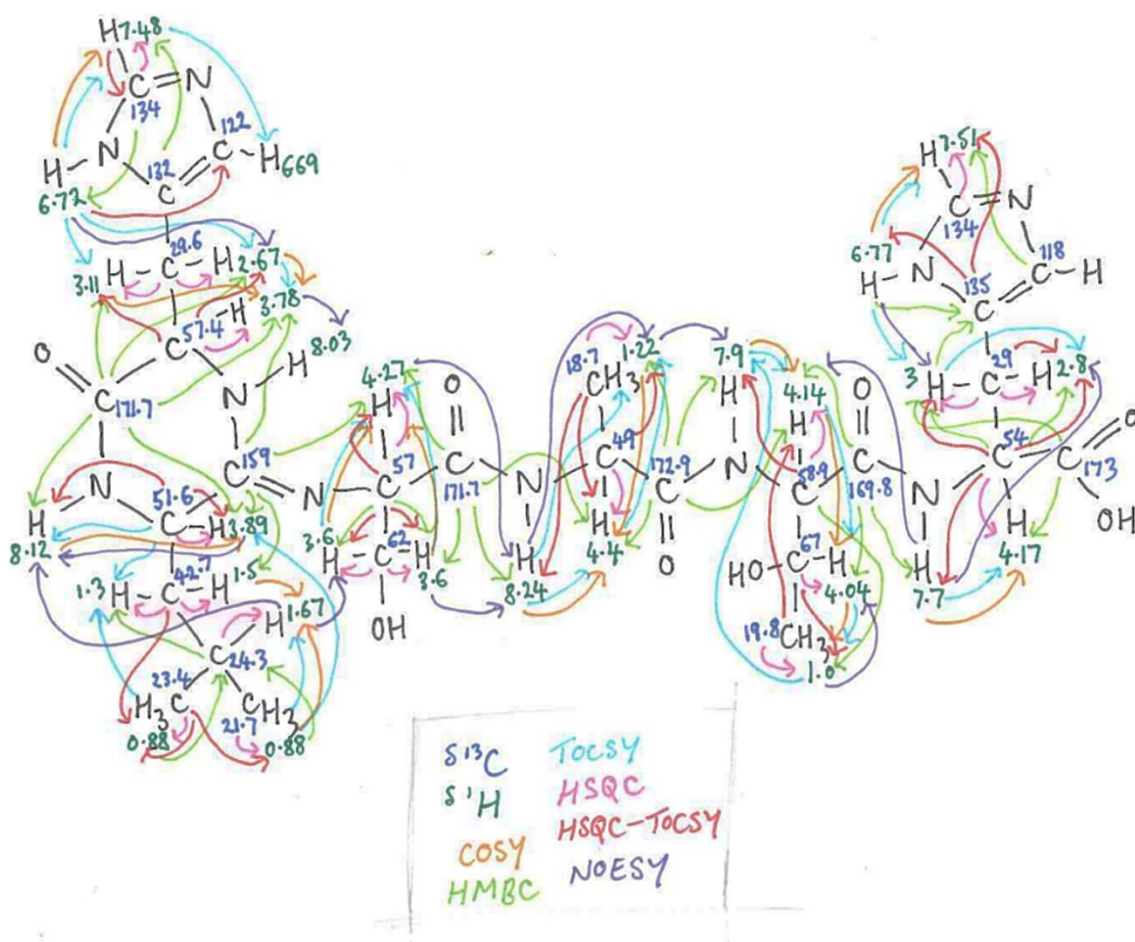 H 7.48
C = N
134
122
N
C - H 669
H
132
6.72
C
29.6
H - C - H 2.67
3.11
H 3.78
57.4
C
O
H 8.03
N
C 171.7
159
C = N
N
51.6
C - H 3.89
H
8.12
42.7
1.3 H - C - H 1.5
H 1.67
C 24.3
23.4
H3C
CH3
21.7
0.88
0.88
4.27
H
O
57
C
C
171.7
3.6
62
H - C - H
3.6
OH
N
H
8.24
18.7
1.22
CH3
49
C
H
4.4
172.9
C
O
7.9
H
N
4.14
H
58.9
C
O
C
169.8
67
HO - C - H
4.04
19.8
CH3
1.0
N
H
7.7
H 7.51
C = N
134
6.77
H - N
118
C - H
135
C
29
3 H - C - H 2.8
54
C
H
4.17
O
C
173
OH
δ 13C
δ 1H
COSY
HMBC
TOCSY
HSQC
HSQC-TOCSY
NOESY